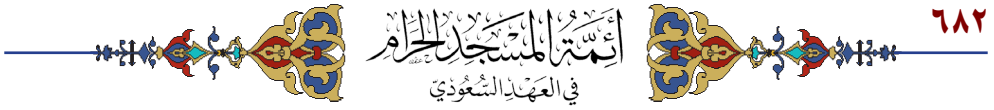 ٦٨٢
أَئِمَّةُ المَسْجِدِ الحَرَامِ
في العَهْدِ السُّعُودِيّ